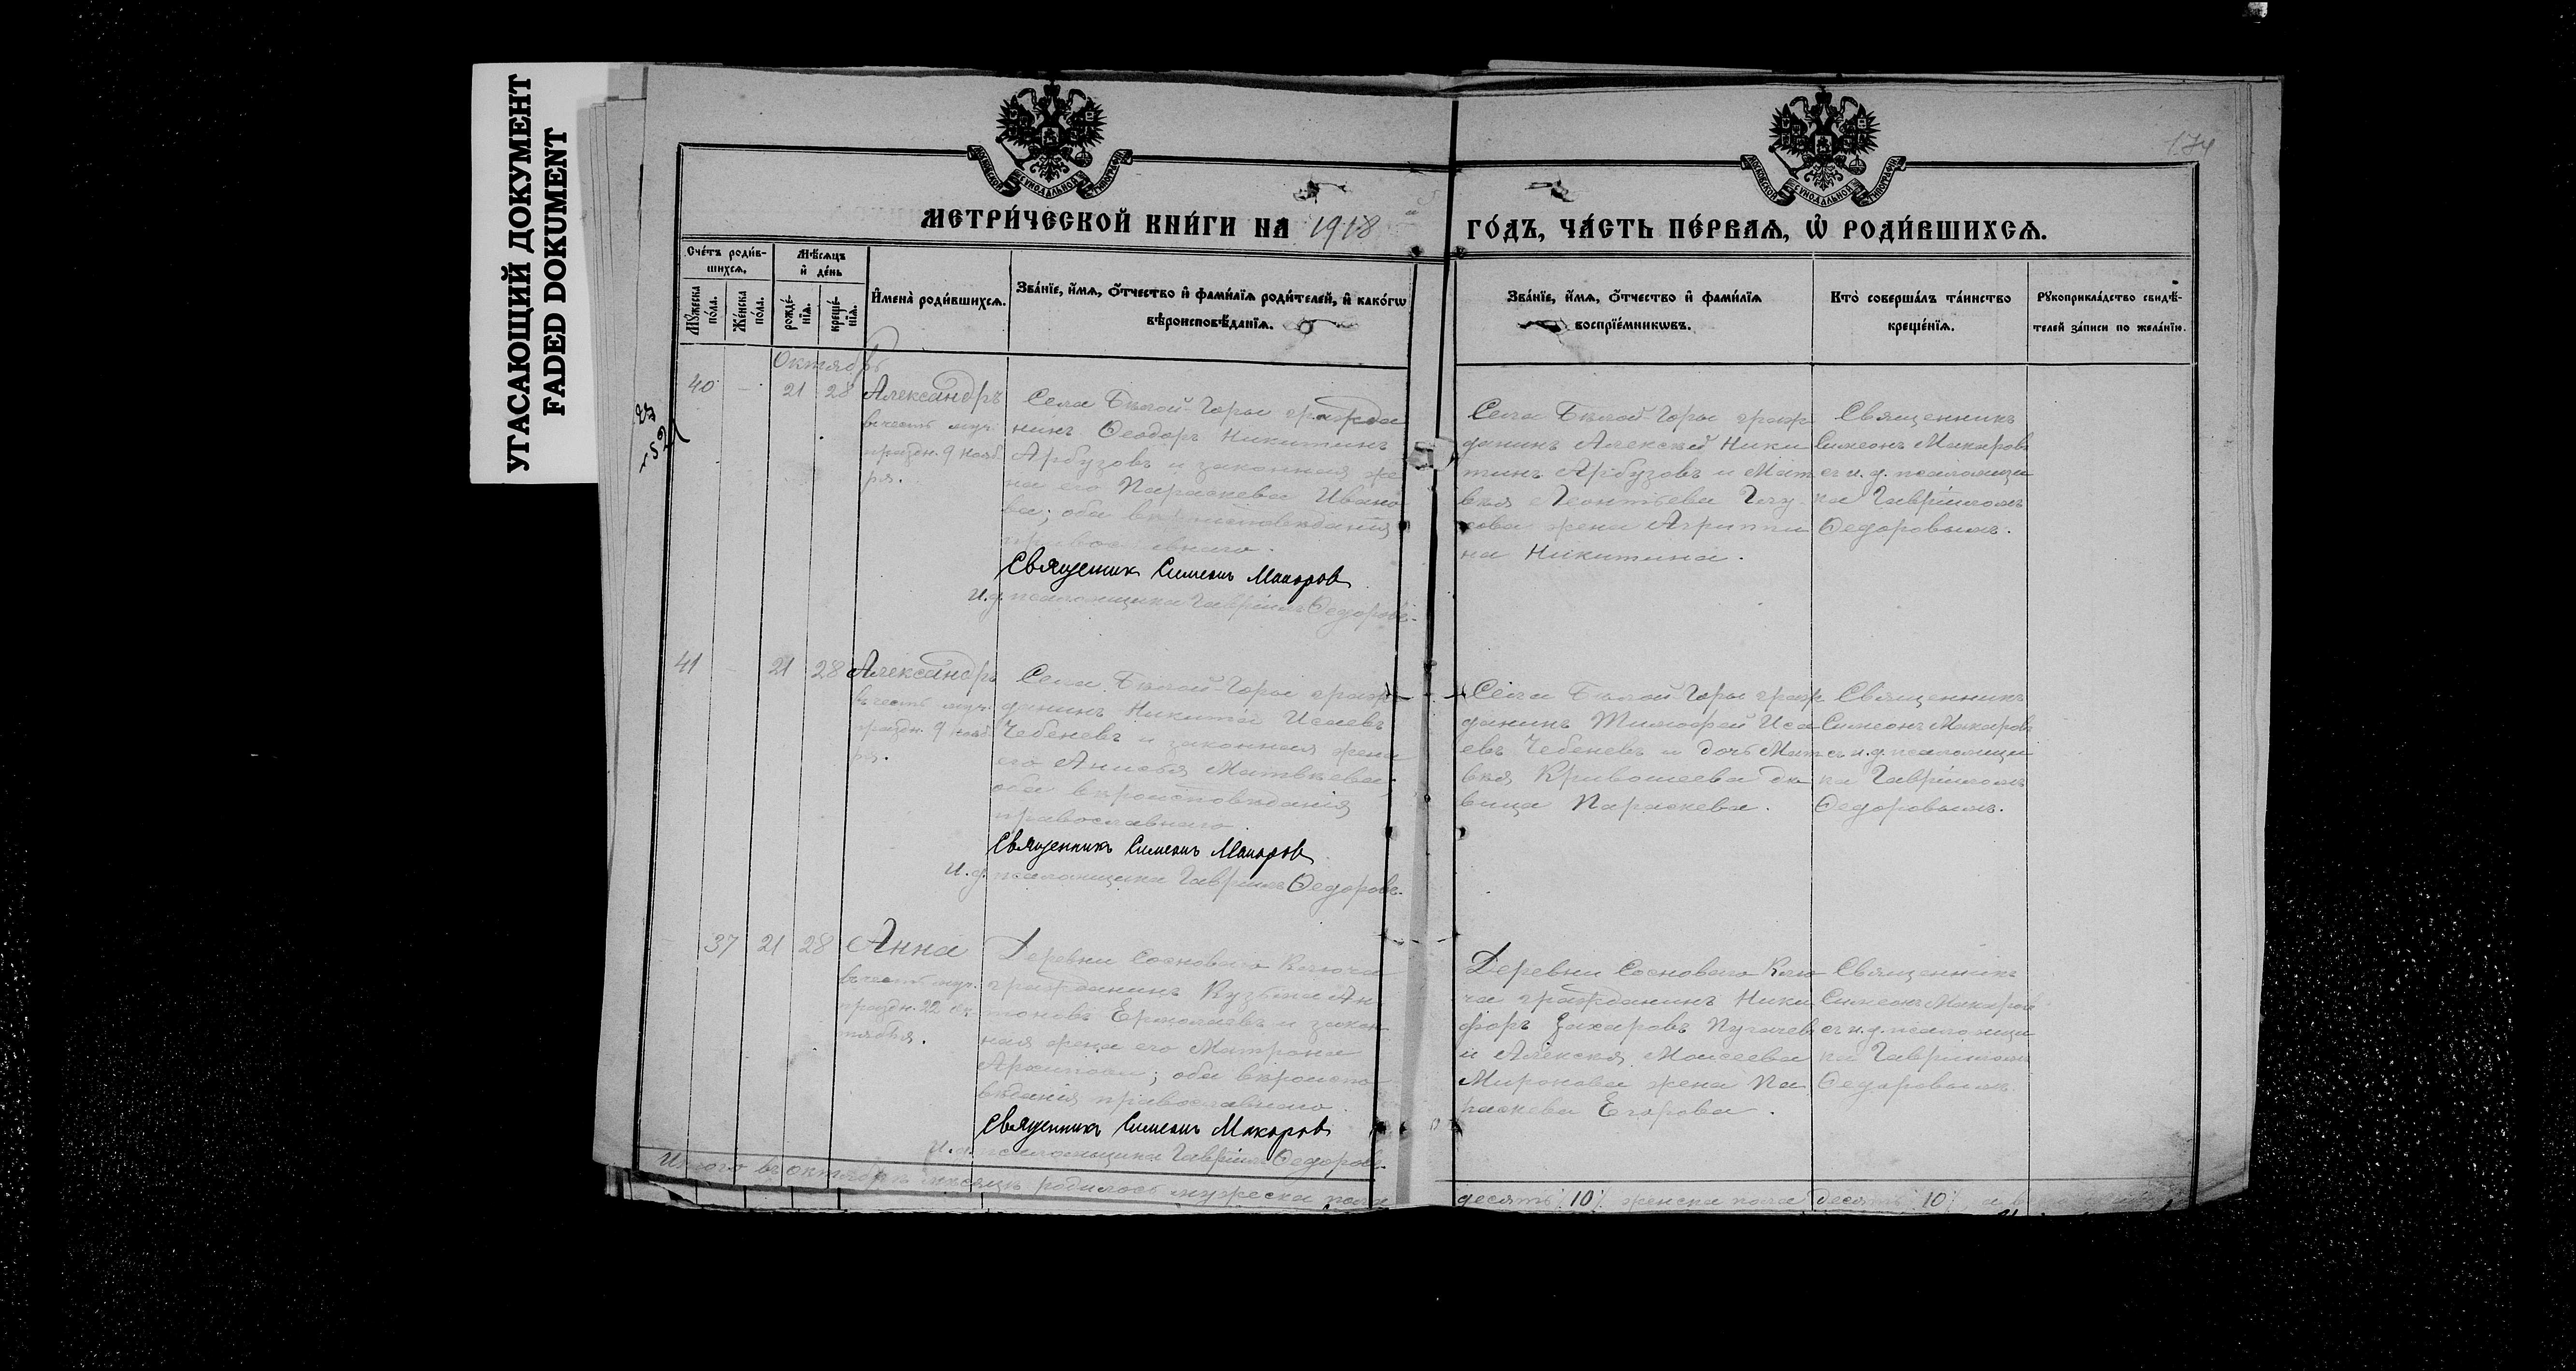 УГАСАЮЩИЙ ДОКУМЕНТ
FADED DOKUMENT
174
МОСКОВСКОЙ СУНОДАЛЬНОЙ ТИПОГРАФІИ
МОСКОВСКОЙ СУНОДАЛЬНОЙ ТИПОГРАФІИ
МЕТРИ́ЧЕСКОЙ КНИ́ГИ НА 1918
ГО́ДЪ, ЧА́СТЬ ПЕ́РВАѦ, Ѡ҆ РОДИ́ВШИХСѦ.
Сче́тъ роди́в-
шихсѧ.
Мѣ́сѧцъ
и҆ де́нь
Мꙋ́жеска по́ла.
Же́нска по́ла.
рожде́-нїѧ.
креще́-нїѧ.
И҆мена̀ роди́вшихсѧ.
Зва́нїе, и҆́мѧ, ѻ҆́тчество и҆ фами́лїѧ роди́телей, и҆ како́гѡ
вѣроисповѣ́данїѧ.
Зва́нїе, и҆́мѧ, ѻ҆́тчество и҆ фами́лїѧ
воспрїе́мникѡвъ.
Кто̀ соверша́лъ та́инство
креще́нїѧ.
Рꙋкоприкла́дство свидѣ́-
телей за́писи по жела́нїю.
Октябрь
40 - 21 28 Александръ
въ честь муч.
праздн. 9 нояб
ря.
Села Бѣлой-Горы гражда
нинъ Ѳеодоръ Никитинъ
Арбузовъ и законная же
на его Параскева Ивано
ва; оба вѣроисповѣданія
православнаго.
Священик Симеонъ Макаров
И.д. псаломщика Гавріилъ Ѳедоровъ.
Села Бѣлой Горы граж
данинъ Алексѣй Ники
тинъ Арбузовъ и Мат
вѣя Леонтьева
жена Агриппи
на Никитина.
Священникъ
Симеонъ Макаровъ
съ и.д. псаломщи
ка Гавріиломъ
Ѳедоровымъ.
41 - 21 28 Александръ
въ честь муч.
праздн. 9 нояб
ря.
Села Бѣлой-Горы граж
данинъ Никита Исаевъ
Чебеневъ и законная жена
его Анисья Матвѣева
оба вѣроисповѣданія
православнаго
Священникъ Симеонъ Макаров
И.д. псаломщика Гавріилъ Ѳедоровъ.
Села Бѣлой Горы граж
данинъ Тимофей Иса
евъ Чебеневъ и дочь Мат
вѣя Кривошеева дѣ
вица Параскева.
Священникъ
Симеонъ Макаровъ
съ и.д. псаломщи
ка Гавріиломъ
Ѳедоровымъ.
37 21 28 Анна
въ честь муч.
праздн. 22 ок
тября.
Деревни Сосноваго Ключа
гражданинъ Кузьма Ан
тоновъ Ермолаевъ и закон
ная жена его Матрона
Архипова; оба вѣроиспо
вѣданія православнаго.
Священникъ Симеонъ Макаров
И.д. псаломщика Гавріилъ Ѳедоровъ.
Деревни Сосноваго Клю
ча гражданинъ Ники
форъ Захаровъ Пугачев
и Алексѣя Моисеева
Миронова жена Па
раскева Егорова.
Священникъ
Симеонъ Макаров
съ и.д. псаломщи
ка Гавріиломъ
Ѳедоровымъ.
Итого въ октябрѣ мѣсяцѣ родилось мужеска пола
десять 10 женска пола десять 10